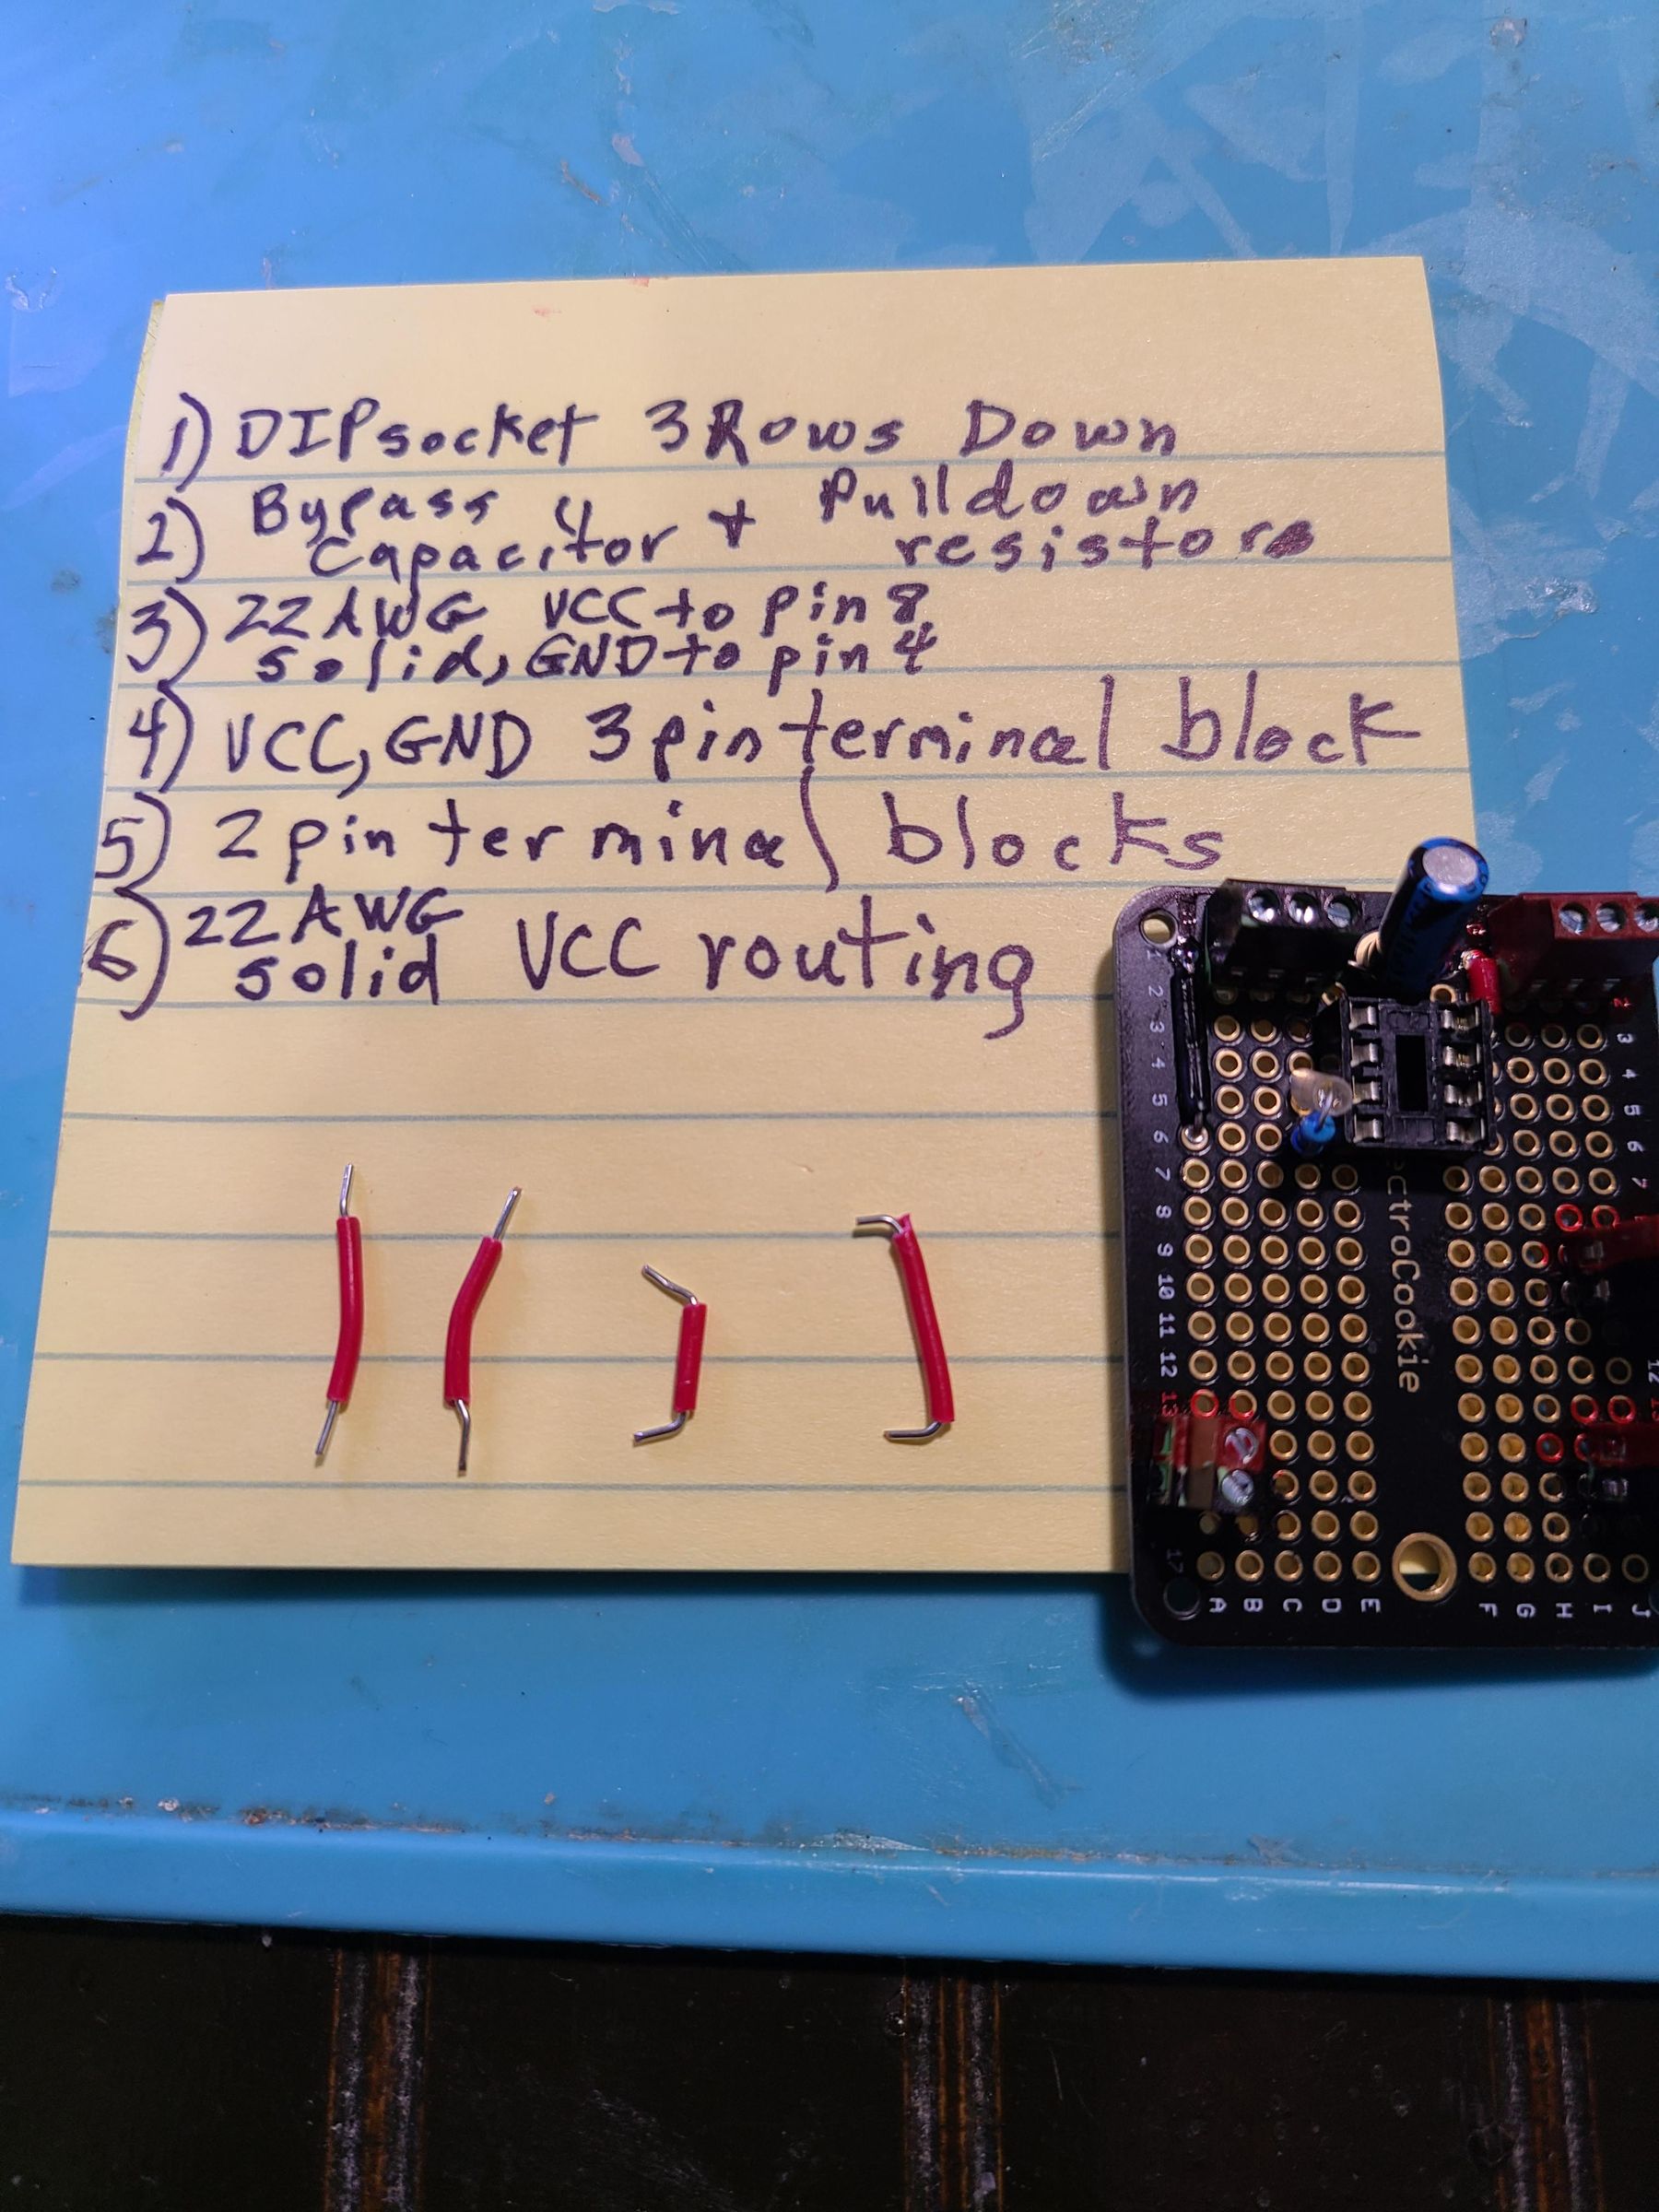 1) DIPsocket 3Rows Down
2) Bypass Capacitor + Pulldown resistors
3) 22 AWG solid, VCC to pin 8
GND to pin 4
4) VCC, GND 3pin terminal block
5) 2pin terminal blocks
6) 22 AWG solid VCC routing
1
2
3
4
5
6
7
8
9
10
11
12
13
17
A B C D E
ctroCookie
F G H I J
2
3
4
5
6
7
12
13